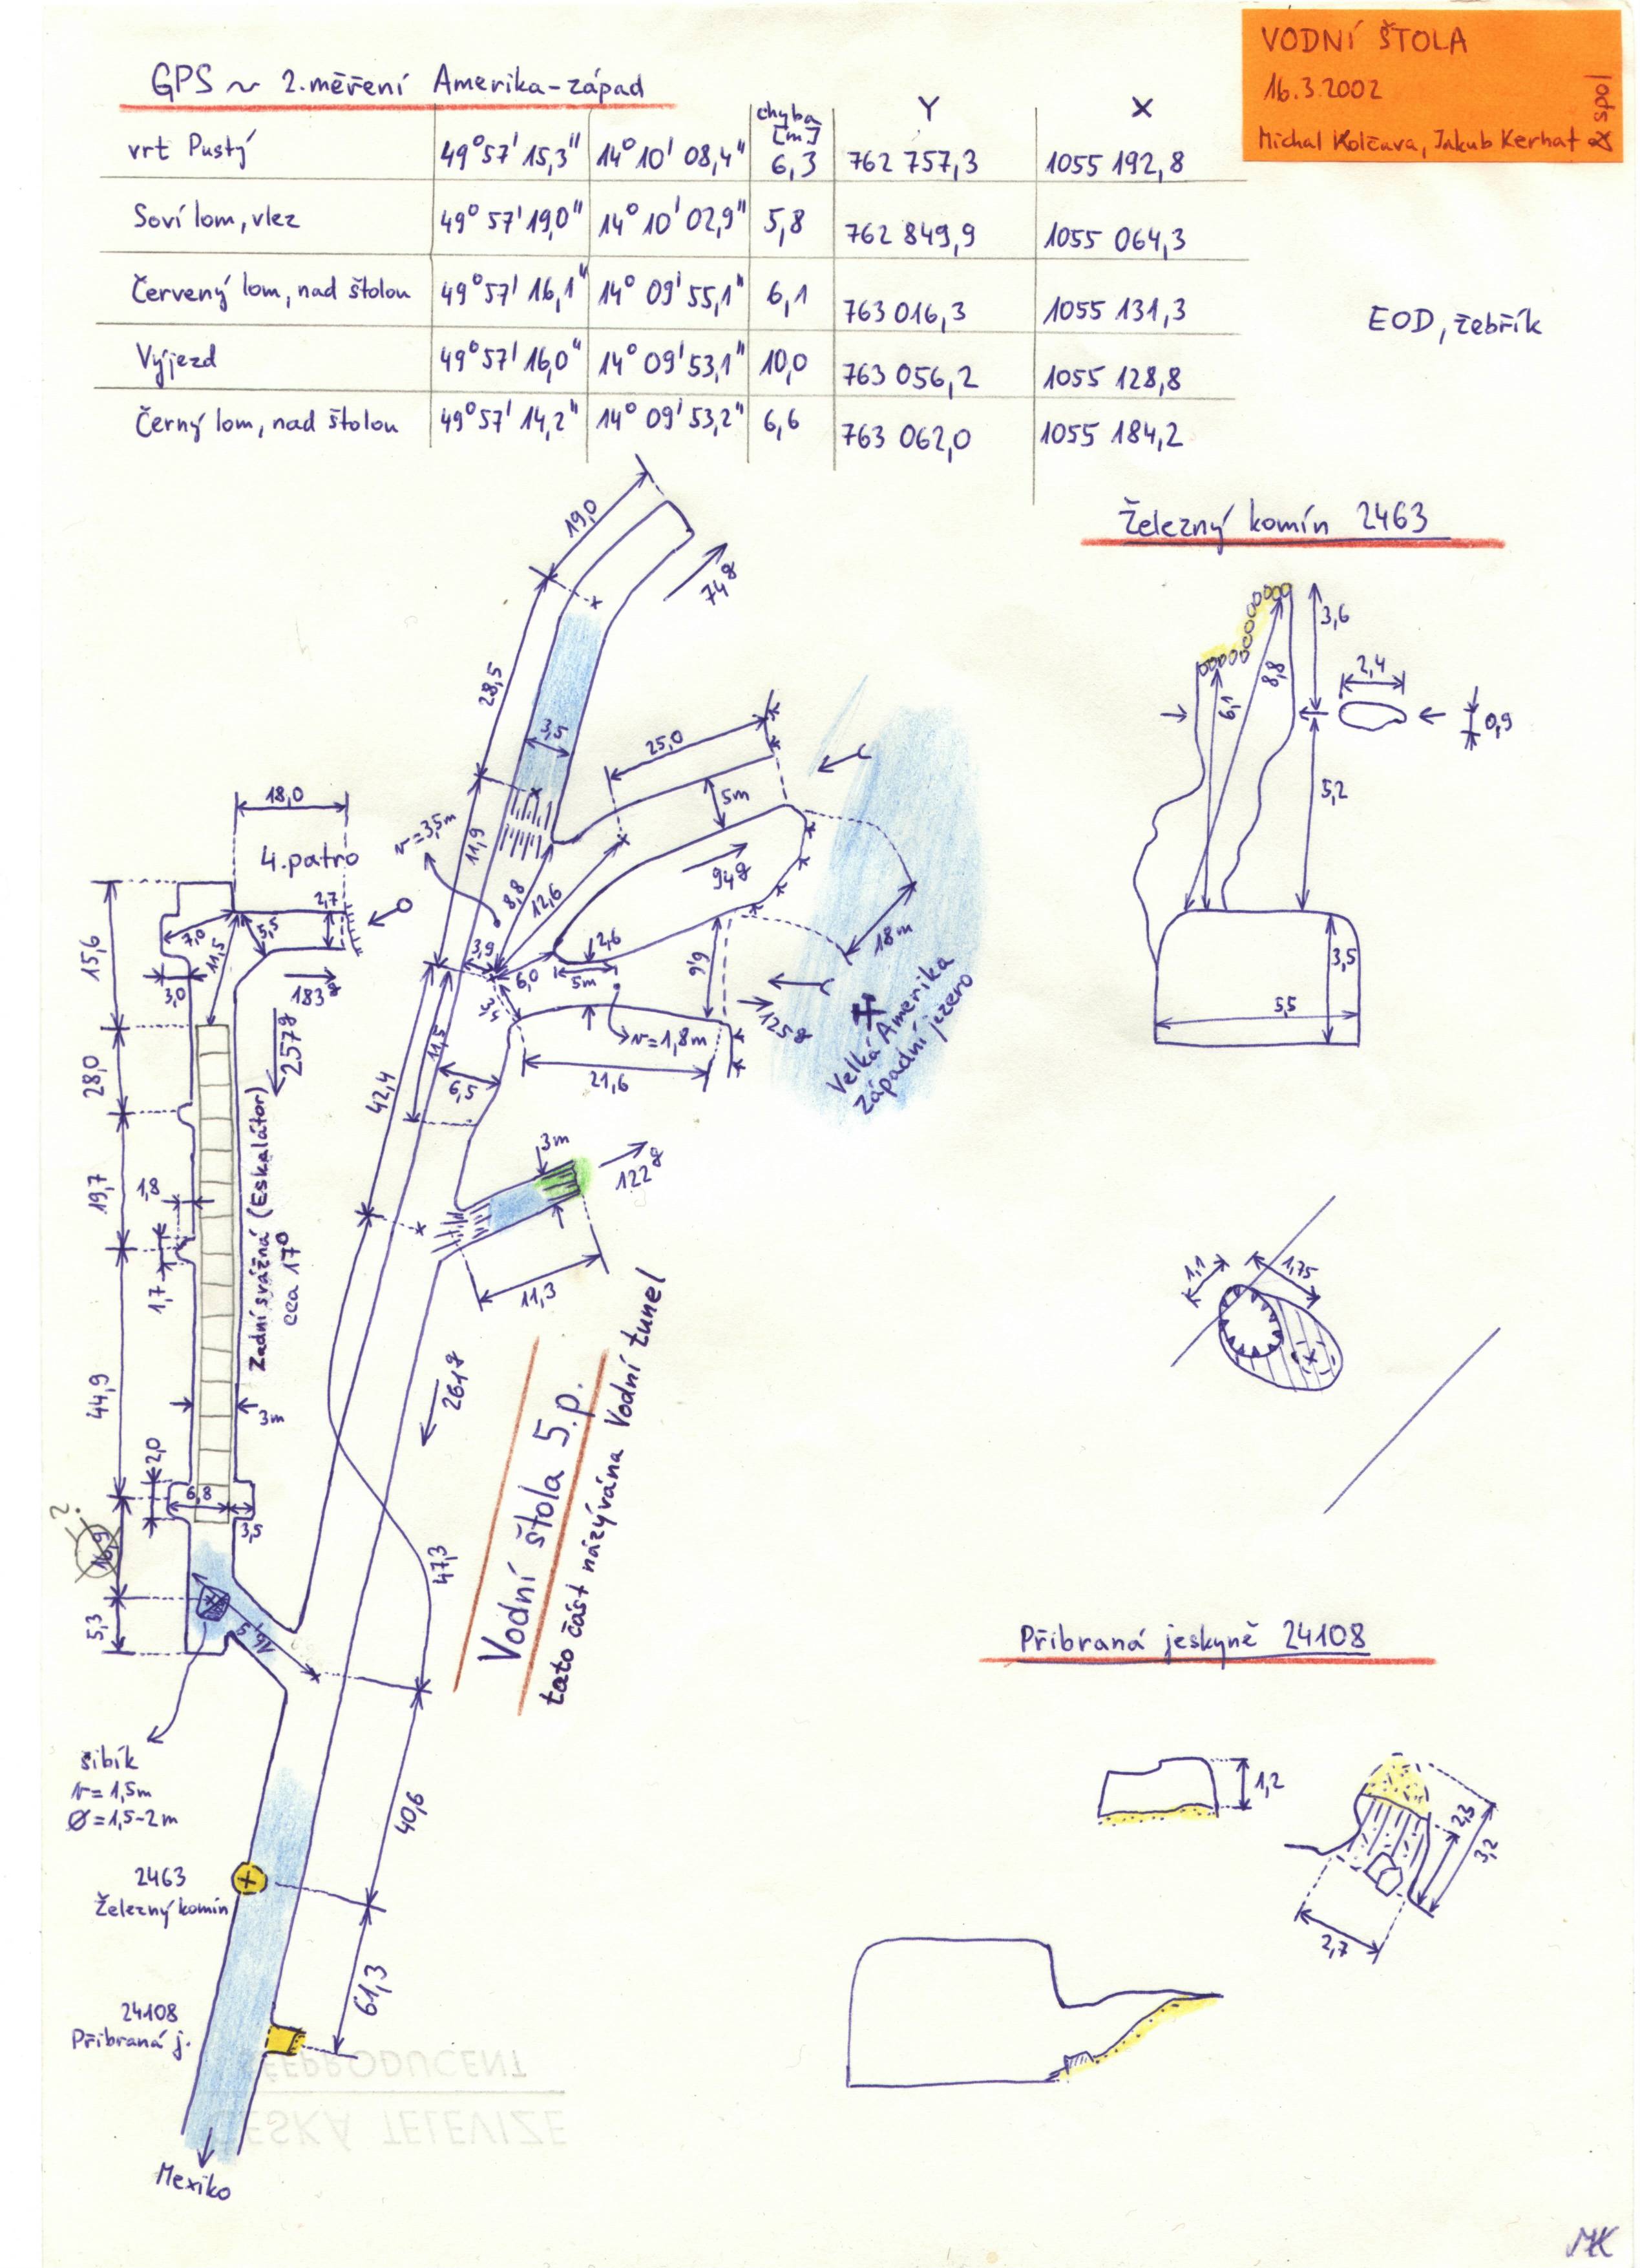 VODNÍ ŠTOLA
16.3.2002
Michal Kolčava, Jakub Kerhat & spol
GPS ~ 2.měření Amerika-západ
chyba [m] Y X
vrt Pustý 49°57'15,3" 14°10'08,4" 6,3 762 757,3 1055 192,8
Soví lom, vlez 49°57'19,0" 14°10'02,9" 5,8 762 849,9 1055 064,3
Červený lom, nad štolou 49°57'16,1" 14°09'55,1" 6,1 763 016,3 1055 131,3
Výjezd 49°57'16,0" 14°09'53,1" 10,0 763 056,2 1055 128,8
Černý lom, nad štolou 49°57'14,2" 14°09'53,2" 6,6 763 062,0 1055 184,2
EOD, žebřík
Železný komín 2463
3,6
8,8
6,1
2,4
0,9
5,2
3,5
5,5
19,0
74g
28,5
3,5
25,0
5m
v=3,5m
11,9
8,8
12,6
94g
18m
3,9
6,0
2,6
5m
3,4
9,9
125g
v=1,8m
21,6
Velká Amerika
západní jezero
42,4
11,5
6,5
3m
122g
11,3
18,0
4.patro
2,7
7,0
5,5
11,5
15,6
3,0
183g
257g
28,0
19,7
1,8
1,7
Zadní svážná (Eskalátor)
cca 17°
44,9
3m
2,0
6,8
3,5
?
16,9
5,3
16,5
261g
Vodní štola 5.p.
tato část názývána Vodní tunel
47,3
šibík
v=1,5m
Ø=1,5-2m
40,6
2463
Železný komín
61,3
24108
Přibraná j.
Mexiko
1,1
1,75
Přibraná jeskyně 24108
1,2
2,3
3,2
2,7
ČESKÁ TELEVIZE
MK